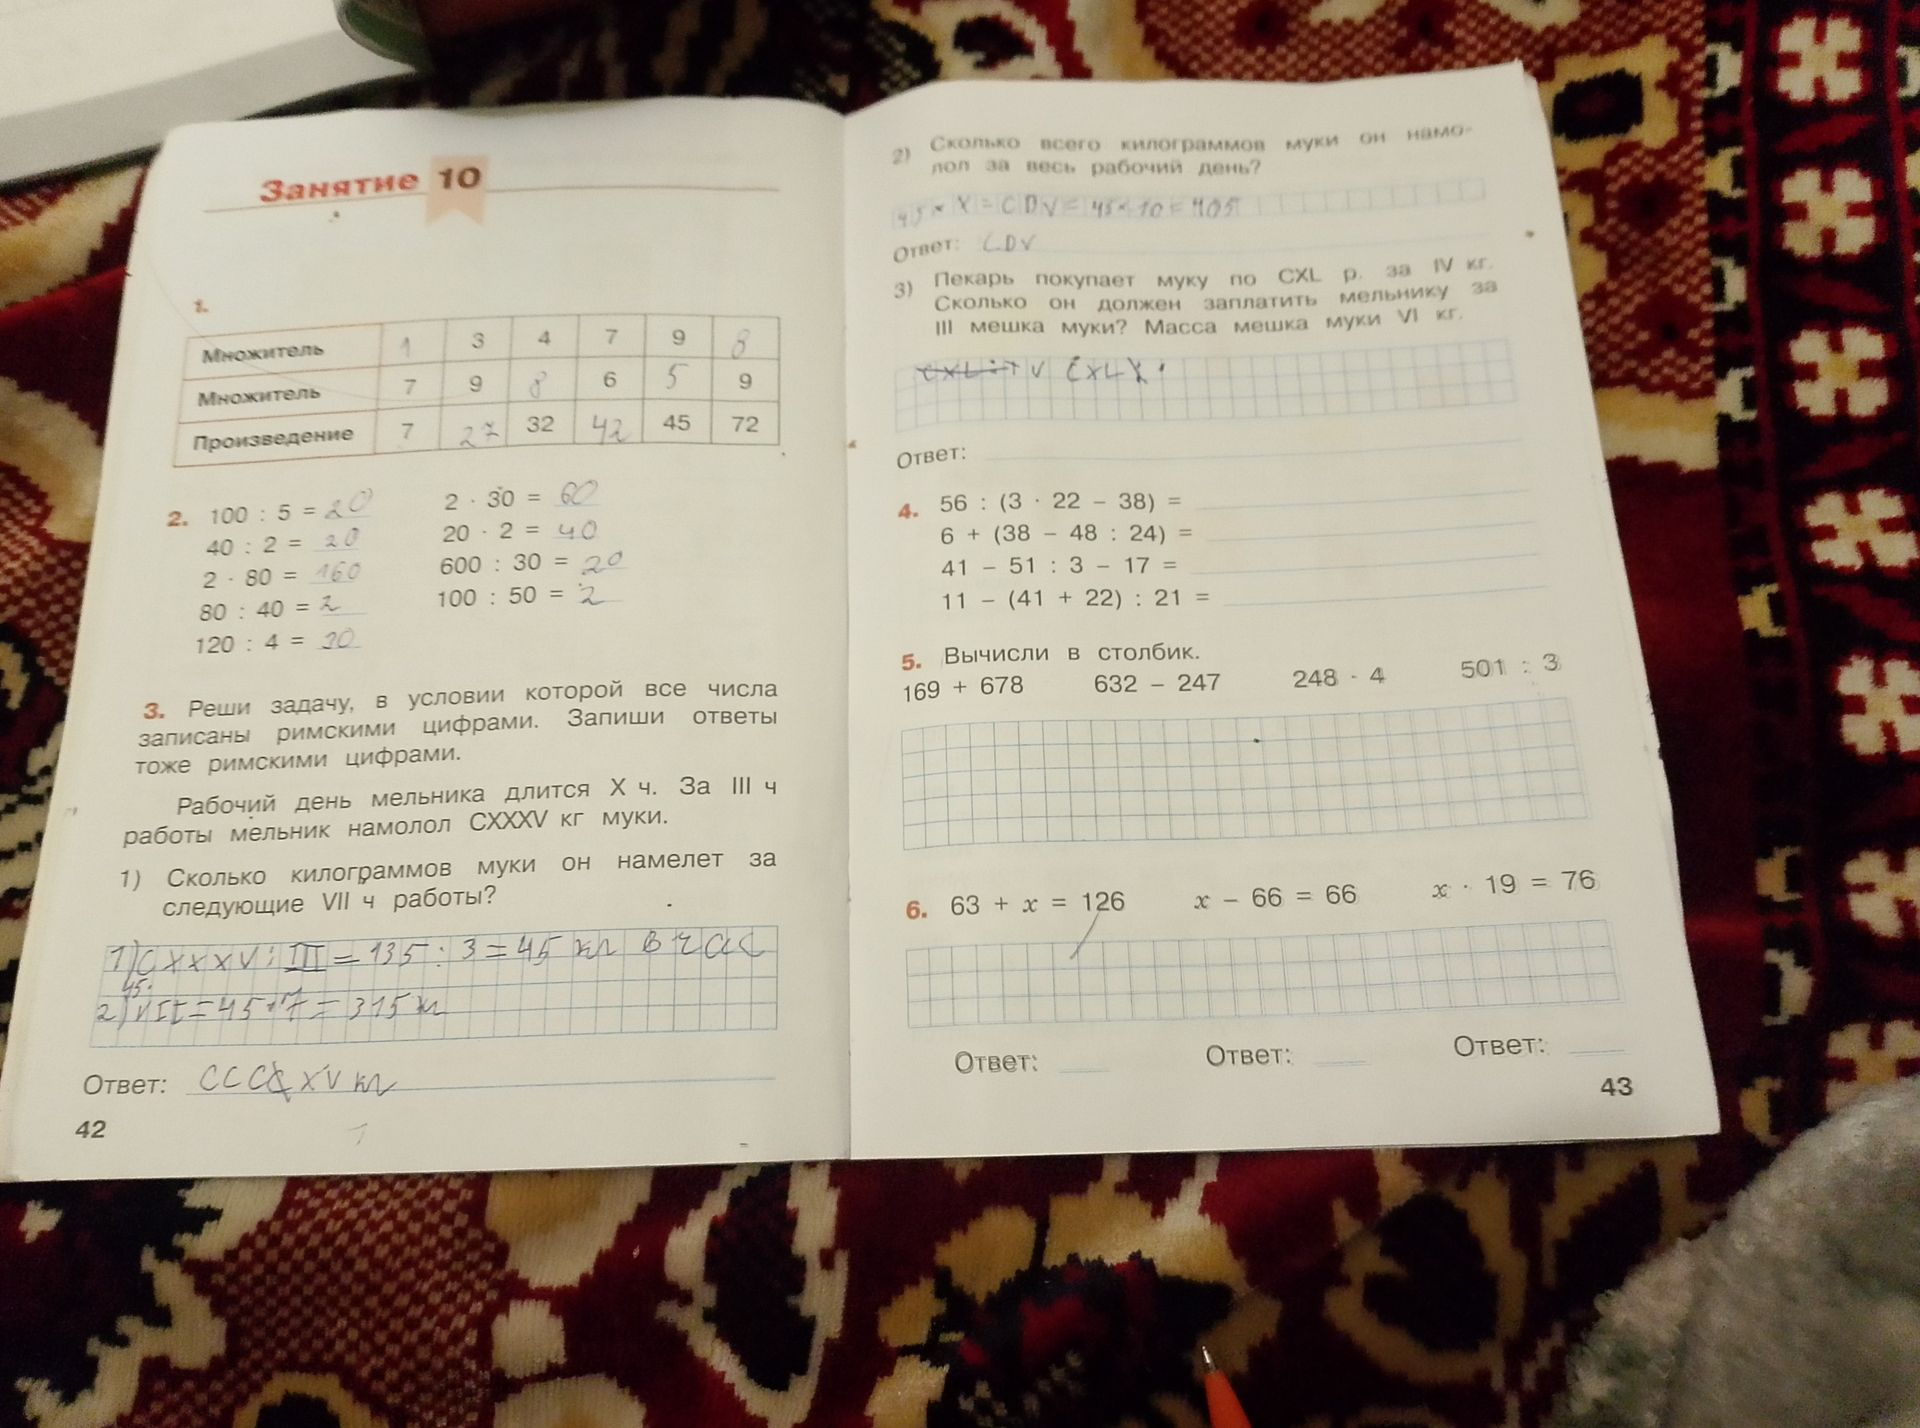 Занятие 10
1.
Множитель 1 3 4 7 9 8
Множитель 7 9 8 6 5 9
Произведение 7 27 32 42 45 72
2. 100 : 5 = 20
40 : 2 = 20
2 · 80 = 160
80 : 40 = 2
120 : 4 = 30
2 · 30 = 60
20 · 2 = 40
600 : 30 = 20
100 : 50 = 2
3. Реши задачу, в условии которой все числа
записаны римскими цифрами. Запиши ответы
тоже римскими цифрами.
Рабочий день мельника длится X ч. За III ч
работы мельник намолол CXXXV кг муки.
1) Сколько килограммов муки он намелет за
следующие VII ч работы?
1) CXXXV : III = 135 : 3 = 45 кг в час
45·
2) VII = 45·7 = 315 кг
Ответ: CCCXV кг
42
2) Сколько всего килограммов муки он намо-
лол за весь рабочий день?
45 × X = CDV = 45 × 10 = 405
Ответ: CDV
3) Пекарь покупает муку по CXL р. за IV кг.
Сколько он должен заплатить мельнику за
III мешка муки? Масса мешка муки VI кг.
CXL : IV CXL
Ответ:
4. 56 : (3 · 22 – 38) =
6 + (38 – 48 : 24) =
41 – 51 : 3 – 17 =
11 – (41 + 22) : 21 =
5. Вычисли в столбик.
169 + 678 632 – 247 248 · 4 501 : 3
6. 63 + x = 126 x – 66 = 66 x · 19 = 76
Ответ: Ответ: Ответ:
43